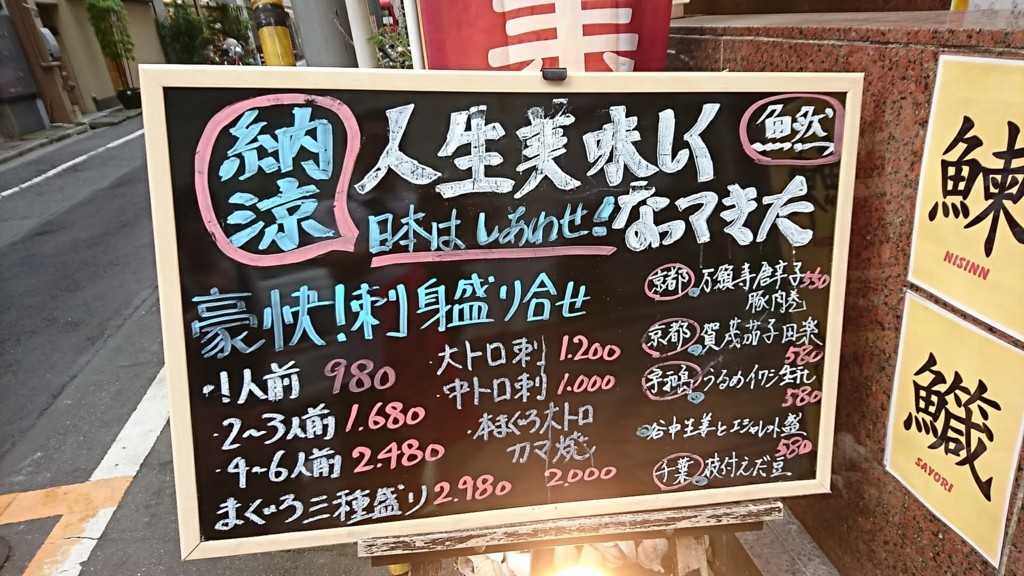 納涼
人生美味しく
なってきた
魚然
日本はしあわせ!
豪快!刺身盛り合せ
・1人前 980
・2~3人前 1.680
・4~6人前 2.480
まぐろ三種盛り 2.980
・大トロ刺 1.200
・中トロ刺 1.000
・本まぐろ大トロ
カマ焼
2.000
京都 万願寺唐辛子 550
豚肉巻
京都 賀茂茄子田楽
580
うるめイワシ
580
谷中生姜とエシャレット盛
580
千葉 枝付えだ豆
鰊
NISINN
SAYORI